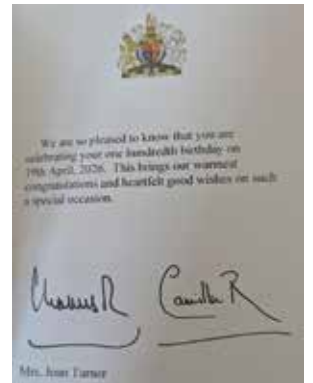 We are so pleased to know that you are
celebrating your one hundredth birthday on
19th April, 2026. This brings our warmest
congratulations and heartfelt good wishes on such
a special occasion.
Charles R Camilla R
Mrs. Joan Turner